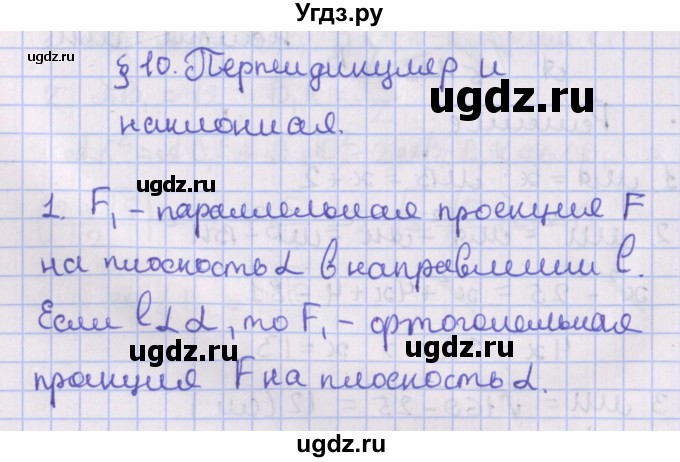 Угдз.ру
ugdz.ru
ugdz.ru
§ 10. Перпендикуляр и
ugdz.ru
наклонная.
ugdz.ru
1. F₁ – параллельная проекция F
на плоскость α в направлении l.
ugdz.ru
Если l⊥α, то F₁ – ортогональная
ugdz.ru
ugdz.ru
проекция F на плоскость α.
ugdz.ru